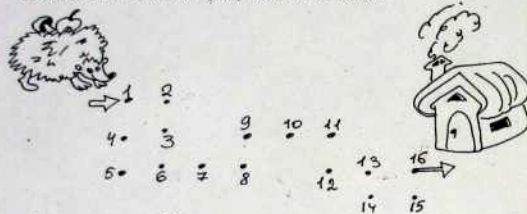 1 2
4 3 9 10 11
5 6 7 8 12 13 16
14 15